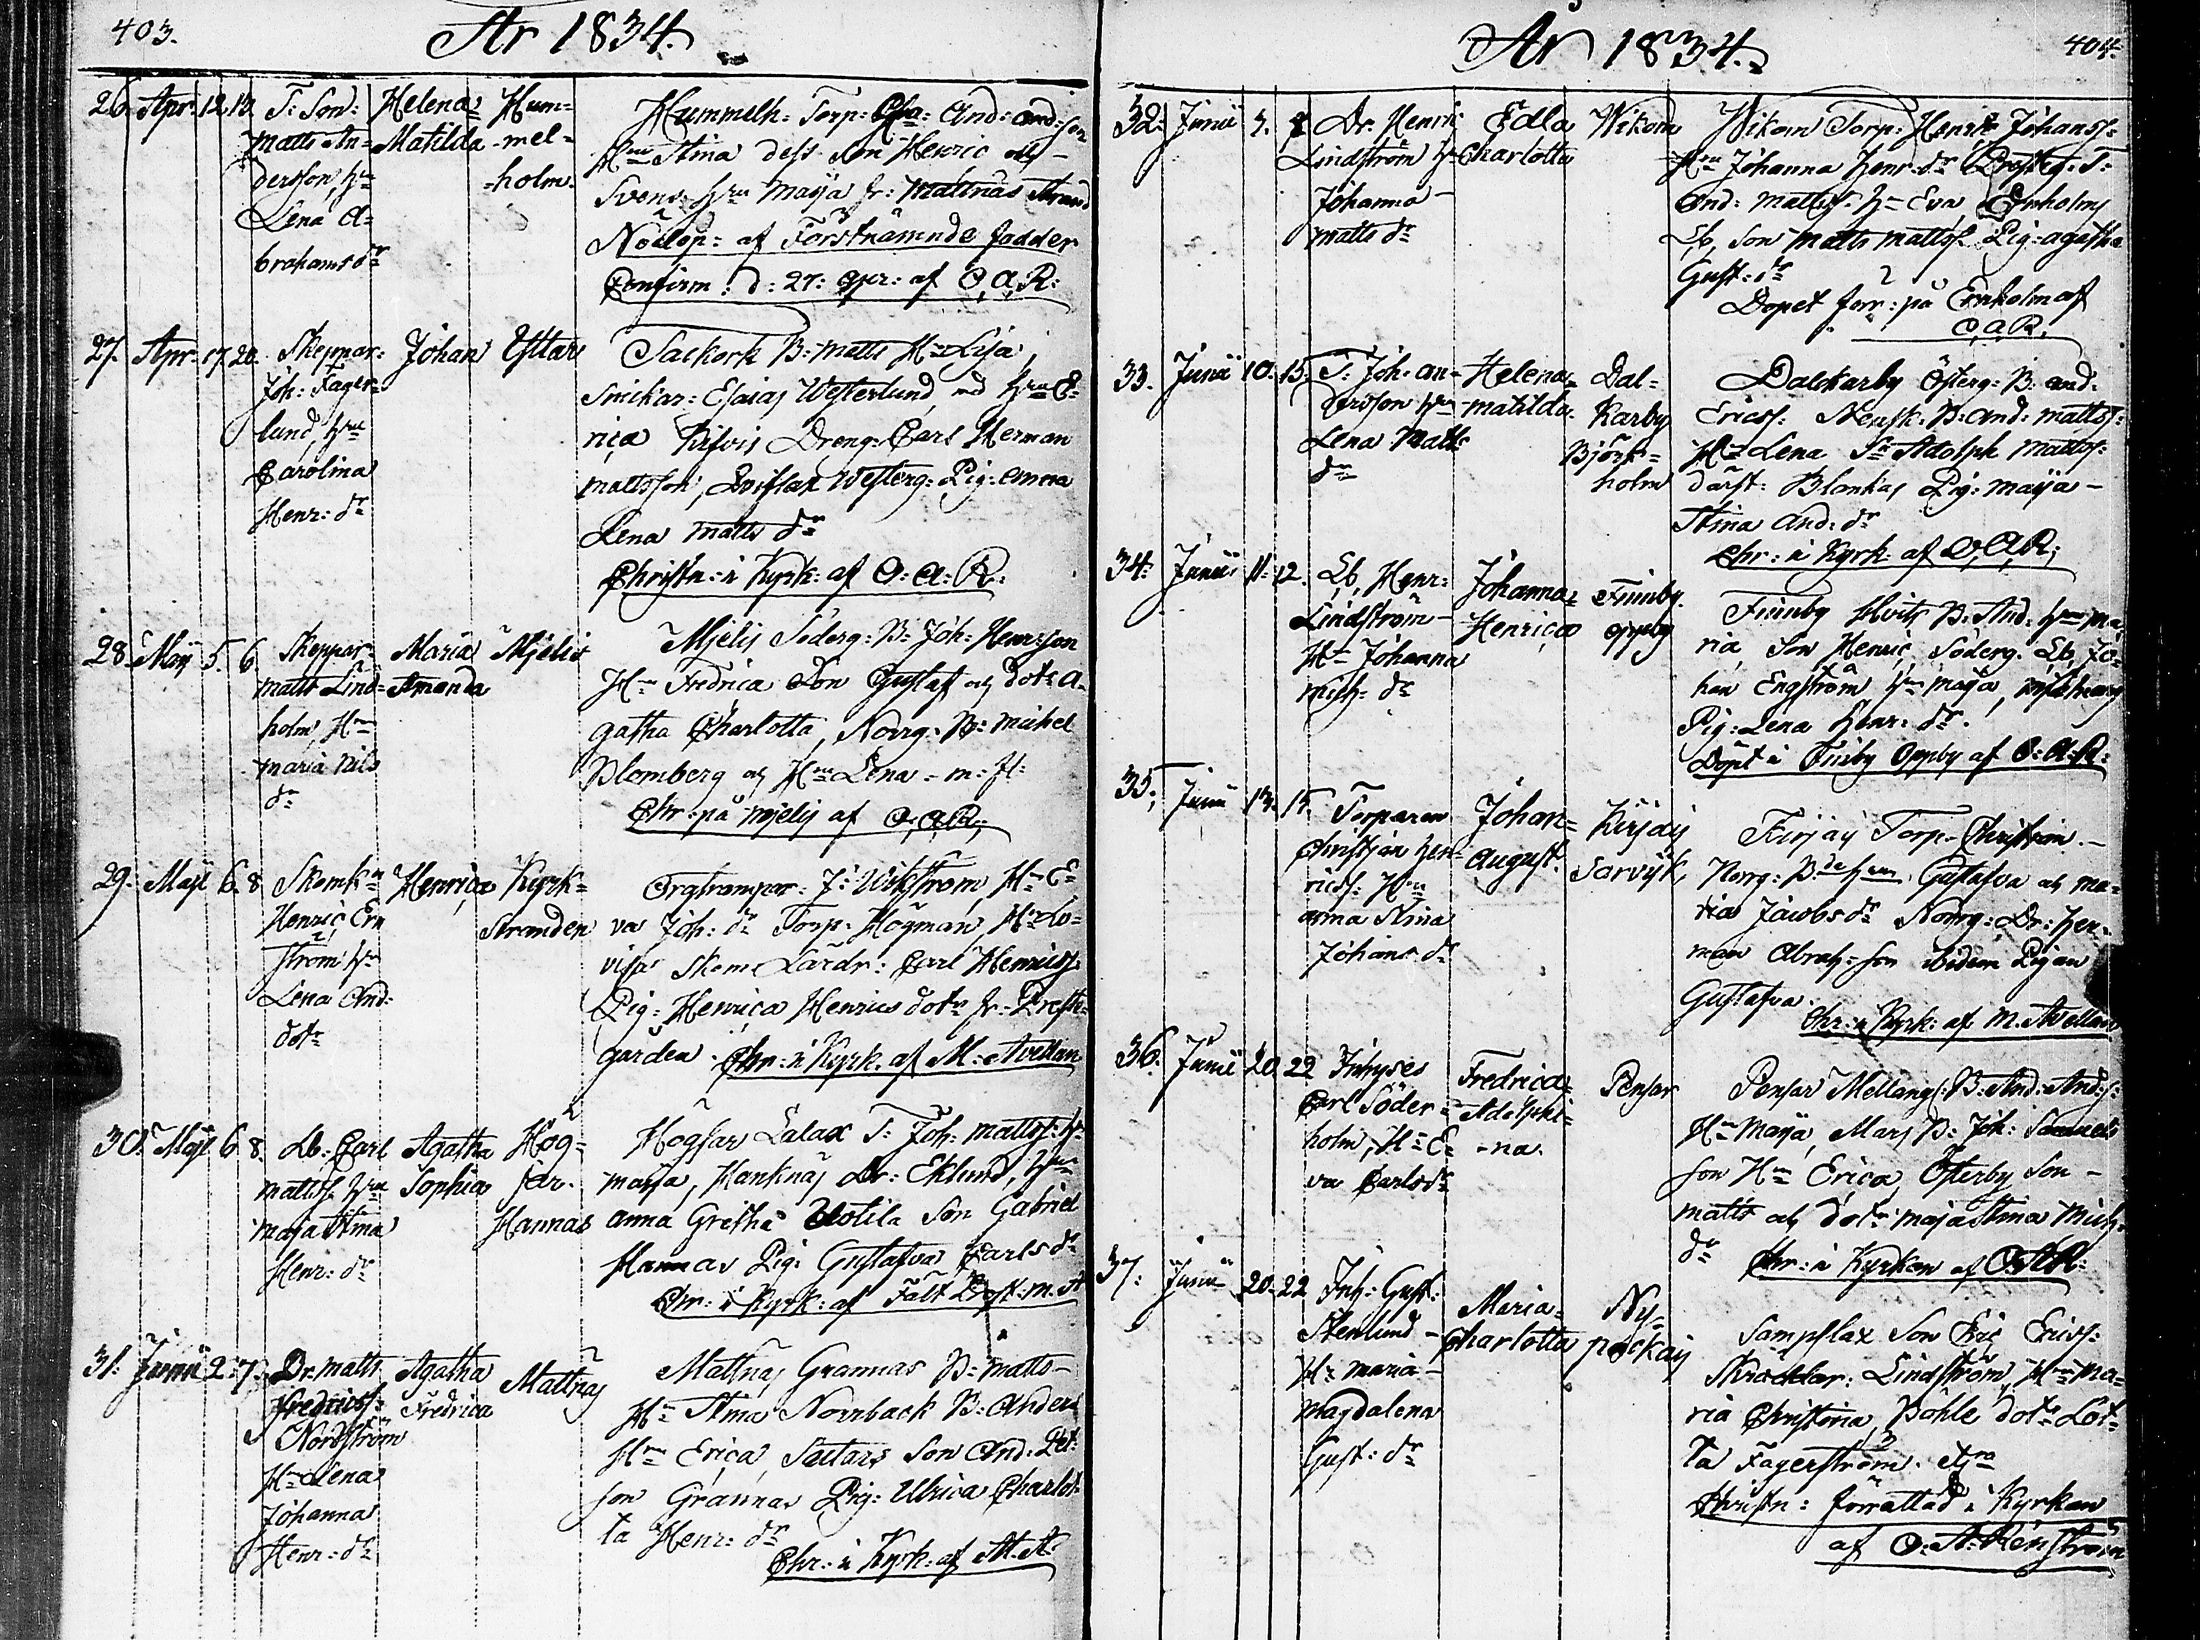 403.
År 1834.
26. Apr. 12. 13.
T: Son:
Matts An-
dersson, Hru
Lena A-
brahams dr
Helena
Matilda
Hum-
mel-
holm.
Hummelh: Torp: And: And:son
Hru Stina dess Son Henric och
Svens Hru Maja fr: Mattnäs Strand
Nöddop: af Förstnämnde fadder
Confirm: d: 27: Apr: af O.A.R:
27. Apr. 17. 20.
Skeppar:
Joh: Fager-
lund, Hru
Carolina
Henr: dr
Johan
B: Matts Hru Lisa,
Snickar: Esaias Westerlund, Hru E-
rica Dreng: Carl Herman
Mattsson, Westerg: Pig: Anna
Lena Matts dr
Christn: i Kyrk: af O: A: R:
28. Maij 5. 6
Skeppar:
Matts Lind-
holm, Hru
Maria Nils
dr
Maria
Amanda
Mjelis
Mjelis Söderg: B: Joh: Henr:son
Hru Fredrica Son Gustaf och dotr A-
gatha Charlotta, Norrg: B: Michel
Blomberg och Hru Lena - m: fl:
Chr: på Mjelis af O.A.R:
29. Maji 6. 8
Henric Ern
ström Hru
Lena And:
dotr
Henrica
Kyrk-
Stranden
Orgtrampar: J: Wikström, Hru E-
va Joh: dr Torp: Högman, Hru Lo-
visa Lärdr: Carl Henricss:
Pig: Henrica Henrics dotr fr: Prest-
gården. Chr: i Kyrk. af M: Avellan
30. Maji 6. 8.
Lb: Carl
Mattss: Hru
Maja Stina
Henr: dr
Agatha
Sophia
Hög-
sar.
Hannas
Högsar Lalax T: Joh: Mattss: Hr
Maja, Hanknäs Dr: Eklund, Hru
Anna Gretha Son Gabriel
Hannas Pig: Gustafva Carls dr
Chr: i Kyrk: af Fält Past: M. A
31. Junii 2. 7.
Dr: Matts
Fredricss:
Nordström
Hr Lena
Johanna
Henr: dr
Agatha
Fredrica
Mattnäs
Mattnäs Grannas B: Matts
Hr Stina Norrback B: Anders
Hru Erica, Son And: Pet:
son Grannas Pig: Ulrica Charlot-
ta Henr: dr
Chr: i Kyrk: af M. A.
År 1834.
404.
32. Junii 3. 8
Dr. Henric
Lindström Hr
Johanna
Matts dr
Edla
Charlotta
Wikom
Wikom Torp: Henric Johanss:
Hru Johanna Henr: dr T:
And: Mattss: Hr Eva, Ernholms
Lb, Son Matts Mattss: Pig: Agatha
Gust: dr
Döpet förr: på Ernholm af
O.A.R.
33. Junii 10. 15.
T: Joh: An-
dersson Hru
Lena Matts
dr
Helena
Matilda.
Dal-
karby
Björk-
holm
Dalckarby Österg: B: And:
Ericss: B: And: Mattss:
Hru Lena Sr Adolph Mattss:
Blankas Pig: Maja -
Stina And: dr
Chr: i Kyrk: af O.A.R.
34. Junii 11. 12.
Lb, Henr:
Lindström
Hr Johanna
Mich: dr
Johanna
Henrica
Finnby
Oppby
Finnby B: And: Hru Ma-
ria, Son Henric, Söderg: Lb, Jo-
han Engström Hru Maja,
Pig: Lena Henr: dr.
Döpt i Finby Oppby af O: A: R:
35. Junii 13. 15.
Torparen
Christian Hen-
ricss: Hru
Anna Stina
Johans dr
Johan
August.
Kirjais
Sarvik,
Kirjais Torp: Christian
Norrg: B: Gustafva och Ma-
ria Jacobs dr Norrg: Dr: Her-
man Abrah:son ibidem Pigan
Gustafva.
Chr: i Kyrk: af M. Avellan
36. Junii 20 22
Inhyses
Carl Söder-
holm, Hr E-
va Carls dr
Fredrica
Adolphi-
-na.
Pensar
Pensar Mellang: B: And: And:s:
Hru Maja, B: Joh: Samuels
son Hru Erica, Österby Son -
Matts och dotr Maja Stina Mich:
dr
Chr: i Kyrkan af O.A.R:
37. Junii 20. 22
Inh: Gust:
Stenlund
Hr Maria
Magdalena
Gust: dr
Maria
Charlotta
Ny-
Sampslax Son Eric Ericss:
Skräddar: Lindström, Hru Ma-
ria Christina, dotr Lot-
ta Fagerström.
Christn: förrättad i Kyrkan
af O. A. Renström